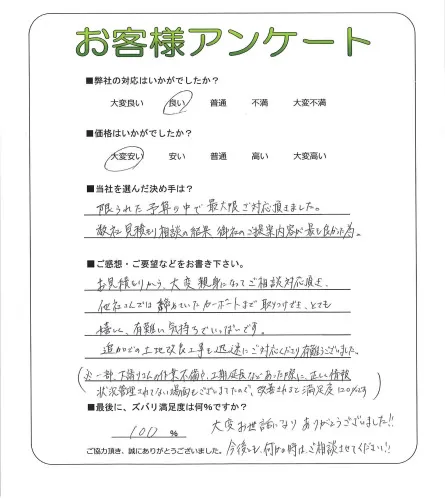 お客様アンケート
■弊社の対応はいかがでしたか？
大変良い 良い 普通 不満 大変不満
■価格はいかがでしたか？
大変安い 安い 普通 高い 大変高い
■当社を選んだ決め手は？
限られた予算の中で最大限ご対応頂きました。
数社見積もり相談の結果 御社のご提案内容が最も良かった為。
■ご感想・ご要望などをお書き下さい。
お見積もりから、大変親身になってご相談対応頂き、
他社さんでは諦めていたカーポートまで取りつけでき、とても
嬉しく、有難い気持ちでいっぱいです。
追加での土地改良工事も迅速にご対応くださり有難うございました。
(※一部、下請けさんの作業不備や、工期延長などあった際に、正しい情報
状況管理されてない場面もございましたので、改善されると満足度120%です)
■最後に、ズバリ満足度は何％ですか？
100 %
大変お世話になりありがとうございました!!
ご協力頂き、誠にありがとうございました。
今後とも、何かの時は、ご相談させてください!!